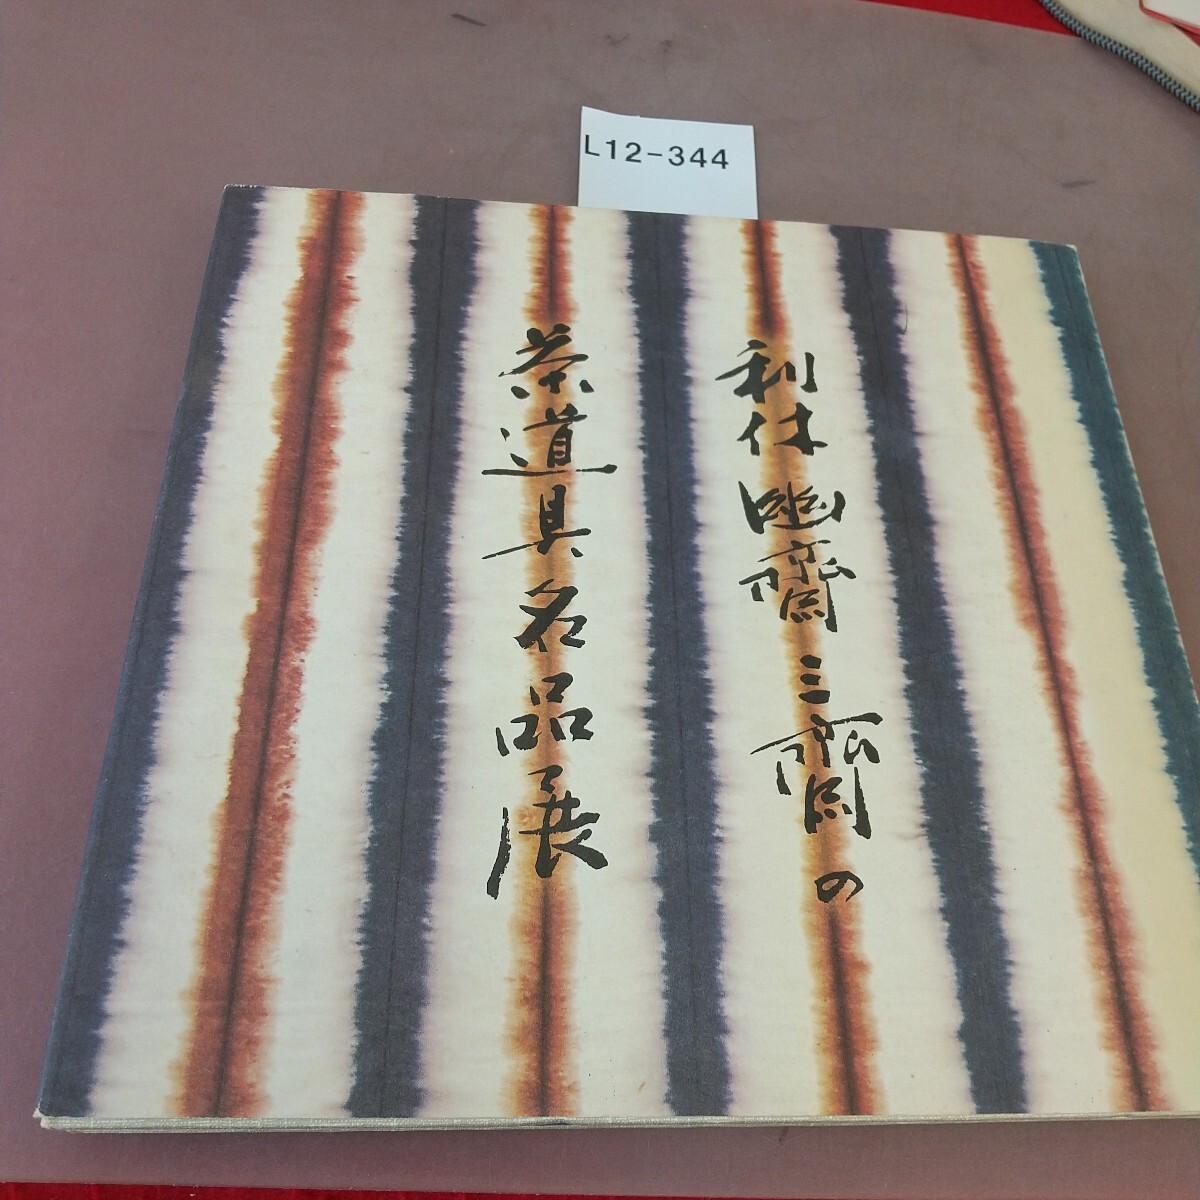 L12-344
利休幽齋三齋の
茶道具名品展